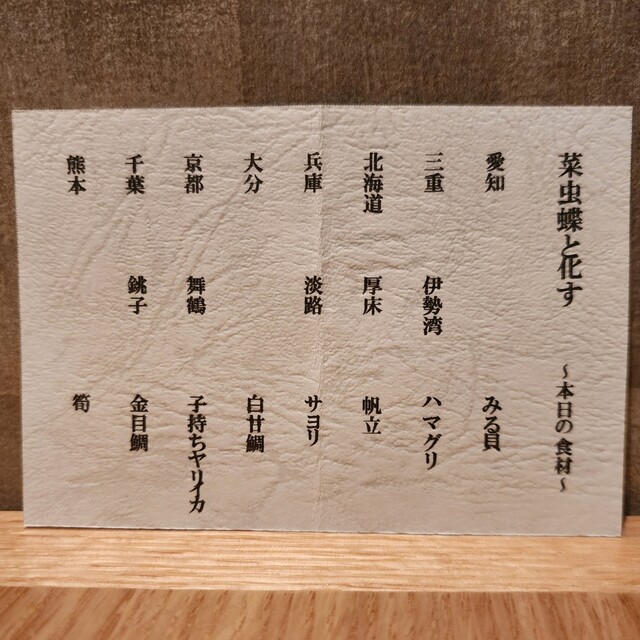 菜虫蝶と化す ～本日の食材～
愛知 みる貝
三重 伊勢湾 ハマグリ
北海道 厚床 帆立
兵庫 淡路 サヨリ
大分 白甘鯛
京都 舞鶴 子持ちヤリイカ
千葉 銚子 金目鯛
熊本 筍